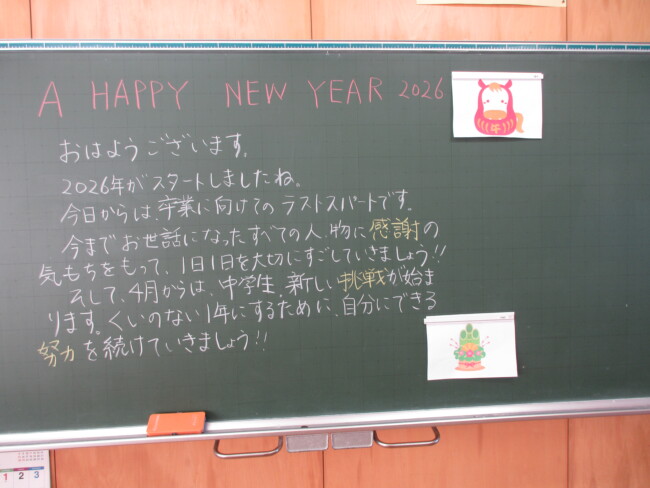 A HAPPY NEW YEAR 2026
おはようございます。
2026年がスタートしましたね。
今日からは、卒業に向けてのラストスパートです。
今までお世話になったすべての人、物に感謝の
気もちをもって、1日1日を大切にすごしていきましょう!!
そして、4月からは、中学生。新しい挑戦が始ま
ります。くいのない1年にするために、自分にできる
努力を続けていきましょう!!
1 2 3